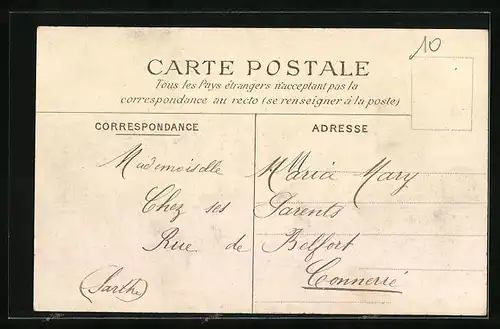 10
CARTE POSTALE
Tous les Pays étrangers n'acceptent pas la
correspondance au recto (se renseigner à la poste)
CORRESPONDANCE
ADRESSE
Mademoiselle Maria Mary
Chez ses Parents
Rue de Belfort
Connerré
(Sarthe)